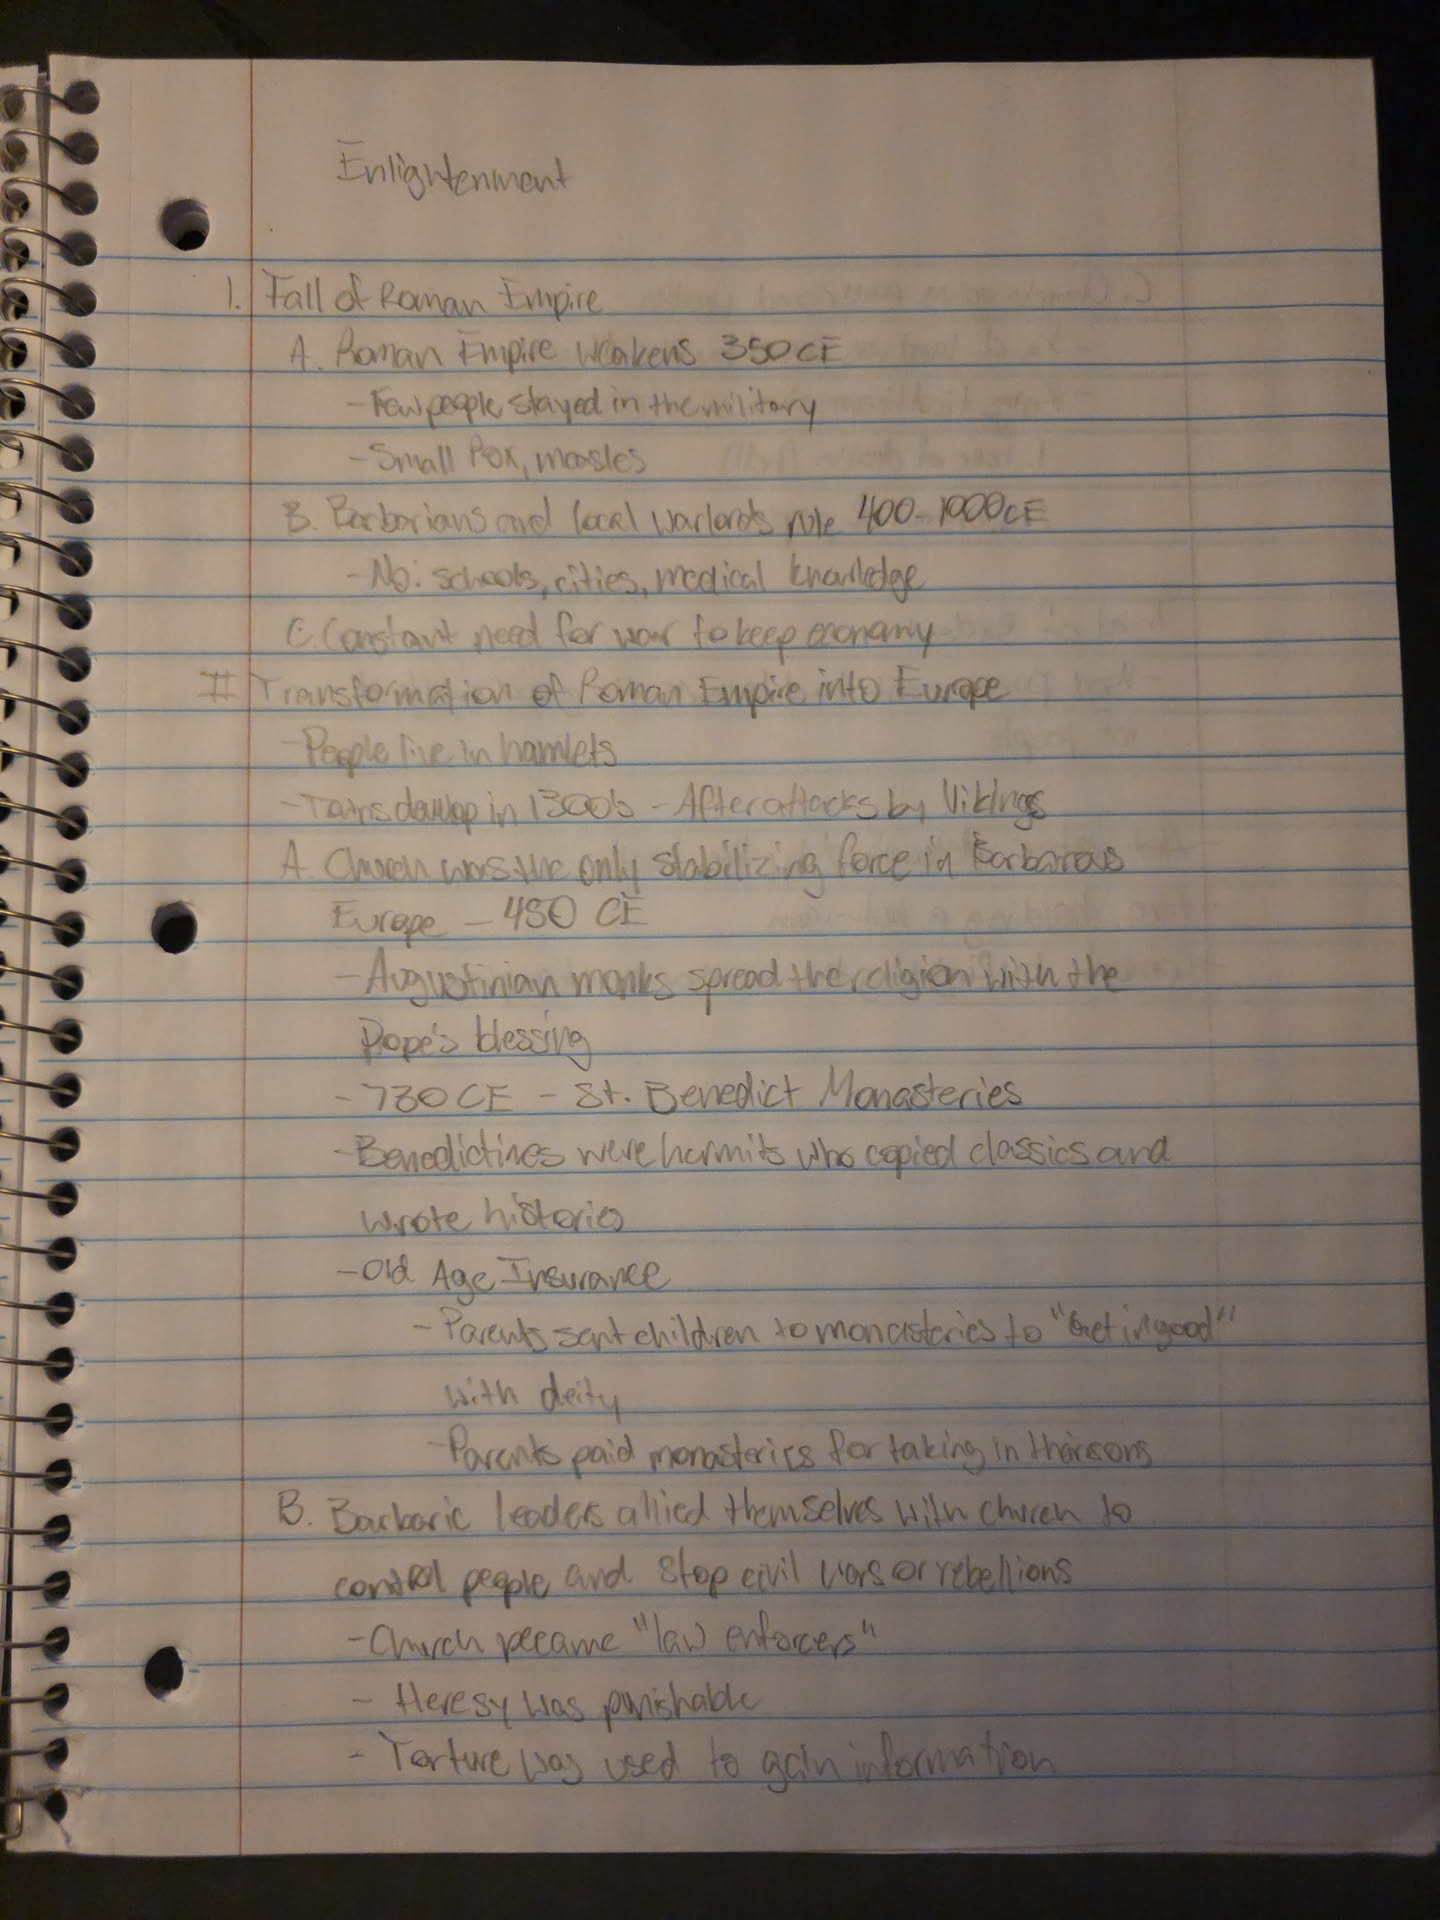 Enlightenment
1. Fall of Roman Empire
A. Roman Empire weakens 350 CE
- Few people stayed in the military
- Small Pox, measles
B. Barbarians and local warlords rule 400-1000 CE
- No: schools, cities, medical knowledge
C. Constant need for war to keep economy
II Transformation of Roman Empire into Europe
- People live in hamlets
- Towns develop in 1300s - After attacks by Vikings
A. Church was the only stabilizing force in Barbarous
Europe - 450 CE
- Augustinian monks spread the religion with the
Pope's blessing
- 730 CE - St. Benedict Monasteries
- Benedictines were hermits who copied classics and
wrote histories
- Old Age Insurance
- Parents sent children to monasteries to "Get in good"
with deity
- Parents paid monasteries for taking in their sons
B. Barbaric leaders allied themselves with church to
control people and stop civil wars or rebellions
- Church became "law enforcers"
- Heresy was punishable
- Torture was used to gain information